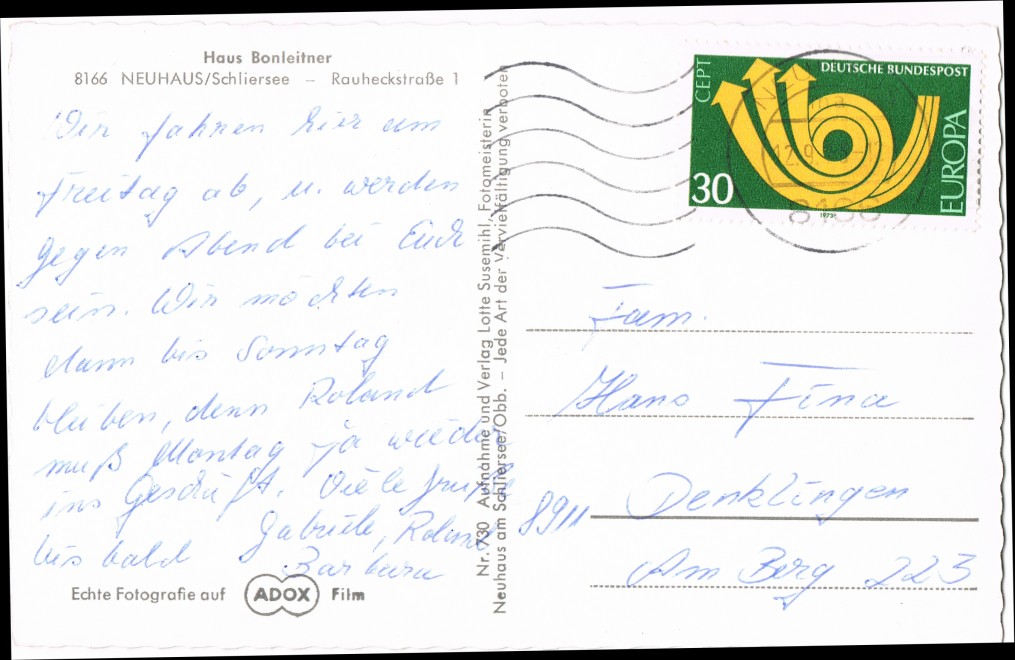 Haus Bonleitner
8166 NEUHAUS/Schliersee – Rauheckstraße 1
Wir fahren hier am
Freitag ab, u. werden
gegen Abend bei Euch
sein. Wir möchten
dann bis Sonntag
bleiben, denn Roland
muß Montag ja wieder
ins Geschäft. Viele Grüße
bis bald Gabriele, Roland
Barbara
Echte Fotografie auf ADOX Film
Nr. 730 Aufnahme und Verlag Lotte Susemihl, Fotomeisterin
Neuhaus am Schliersee/Obb. – Jede Art der Vervielfältigung verboten
CEPT
DEUTSCHE BUNDESPOST
EUROPA
30
1973
12.9.
8166
Fam.
Hans Fina
8911 Denklingen
Am Berg 223